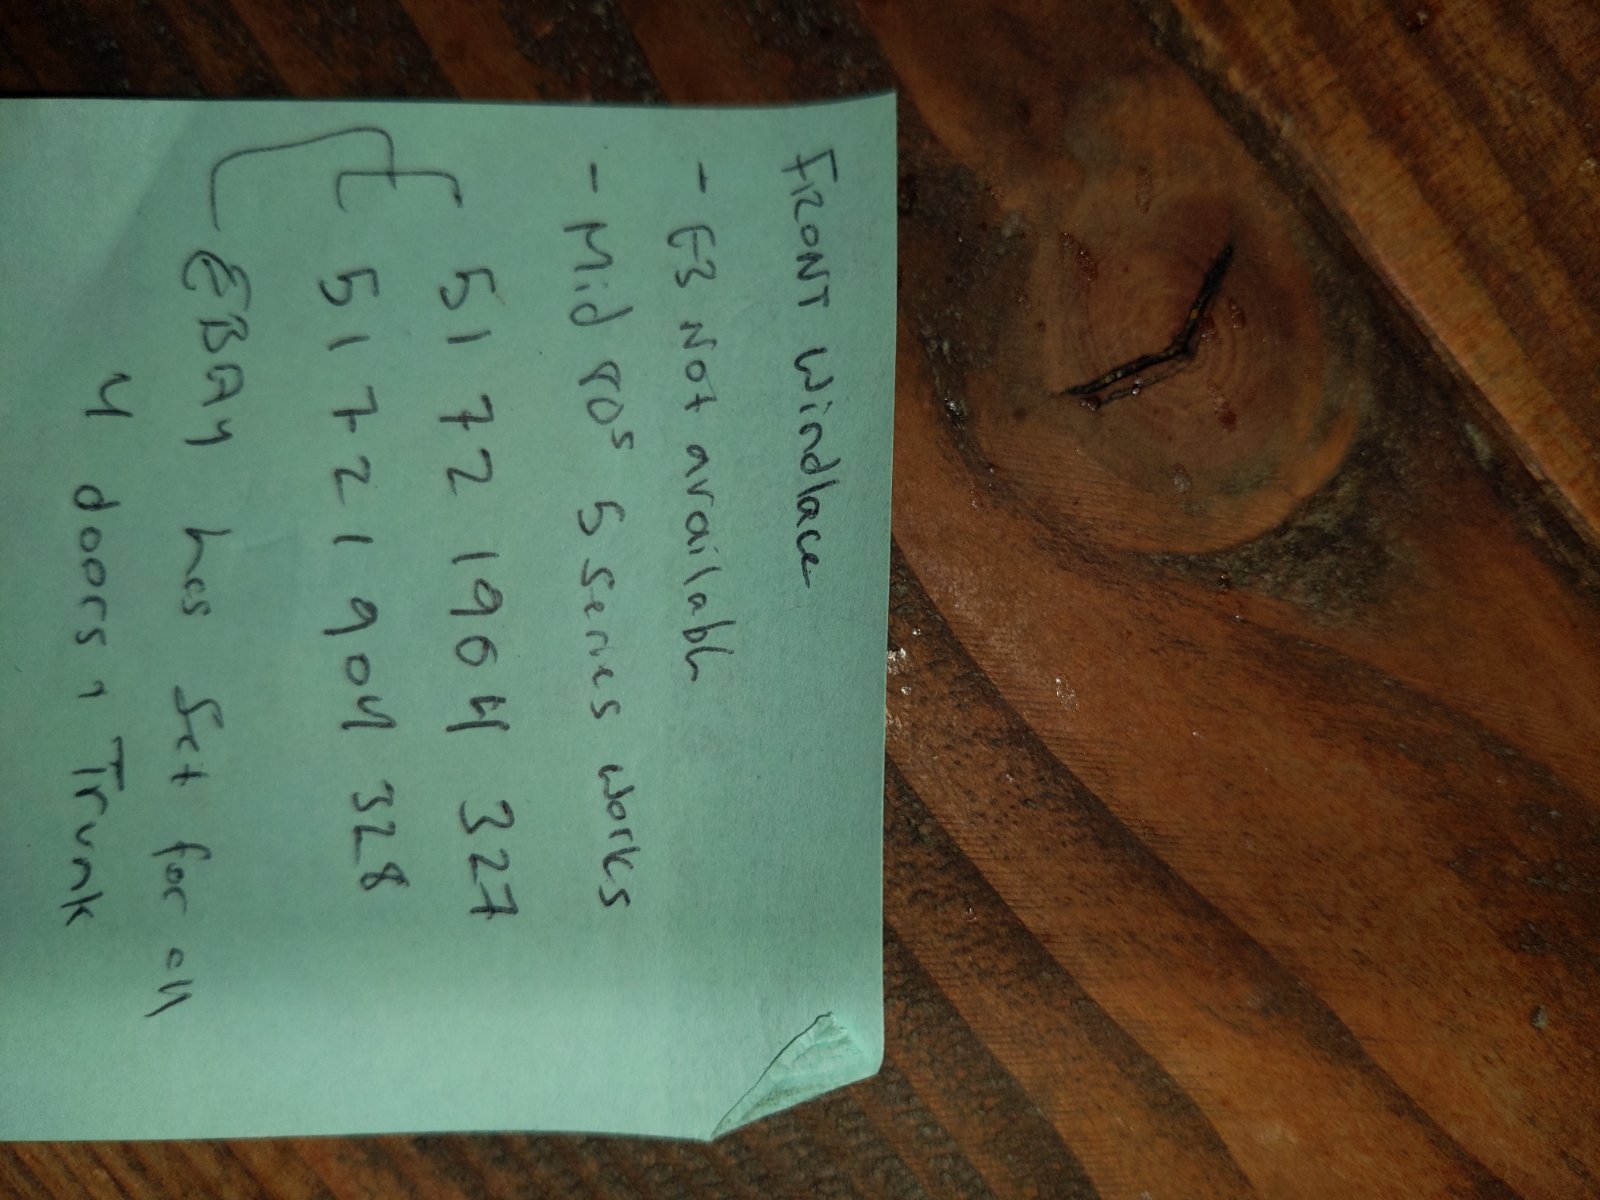 FRONT Windlace
- E3 Not available
- Mid 80s 5 Series works
51 72 1904 327
51 72 1 904 328
EBAY has Set for all
4 doors, Trunk